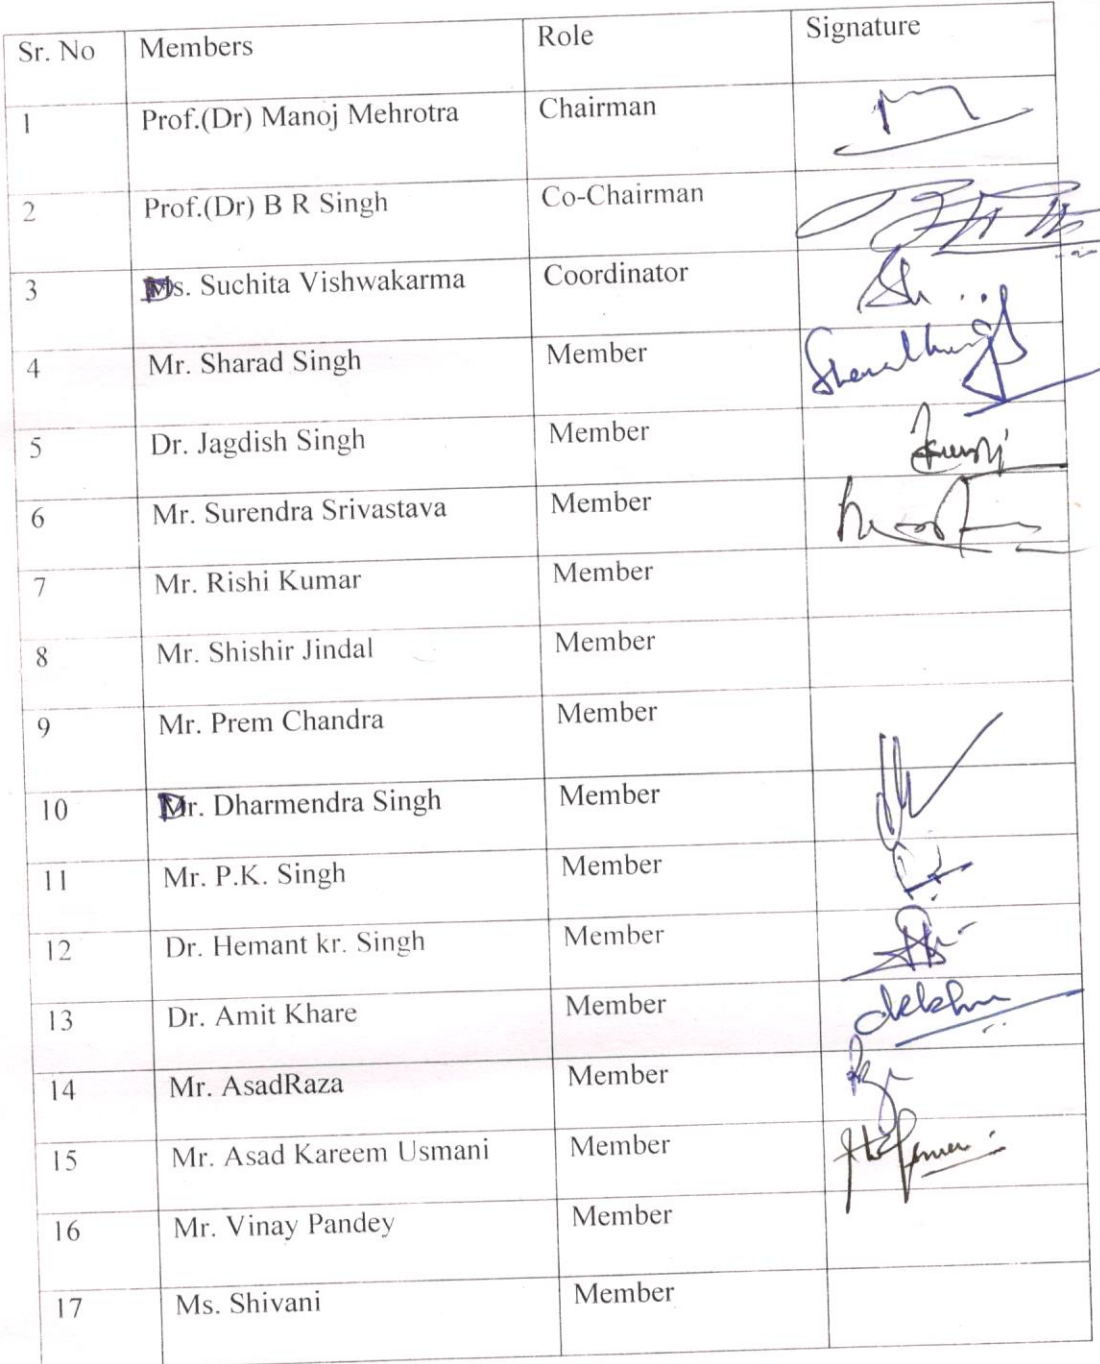 Sr. No Members Role Signature
1 Prof.(Dr) Manoj Mehrotra Chairman
2 Prof.(Dr) B R Singh Co-Chairman
3 Ms. Suchita Vishwakarma Coordinator
4 Mr. Sharad Singh Member
5 Dr. Jagdish Singh Member
6 Mr. Surendra Srivastava Member
7 Mr. Rishi Kumar Member
8 Mr. Shishir Jindal Member
9 Mr. Prem Chandra Member
10 Dr. Dharmendra Singh Member
11 Mr. P.K. Singh Member
12 Dr. Hemant kr. Singh Member
13 Dr. Amit Khare Member
14 Mr. AsadRaza Member
15 Mr. Asad Kareem Usmani Member
16 Mr. Vinay Pandey Member
17 Ms. Shivani Member